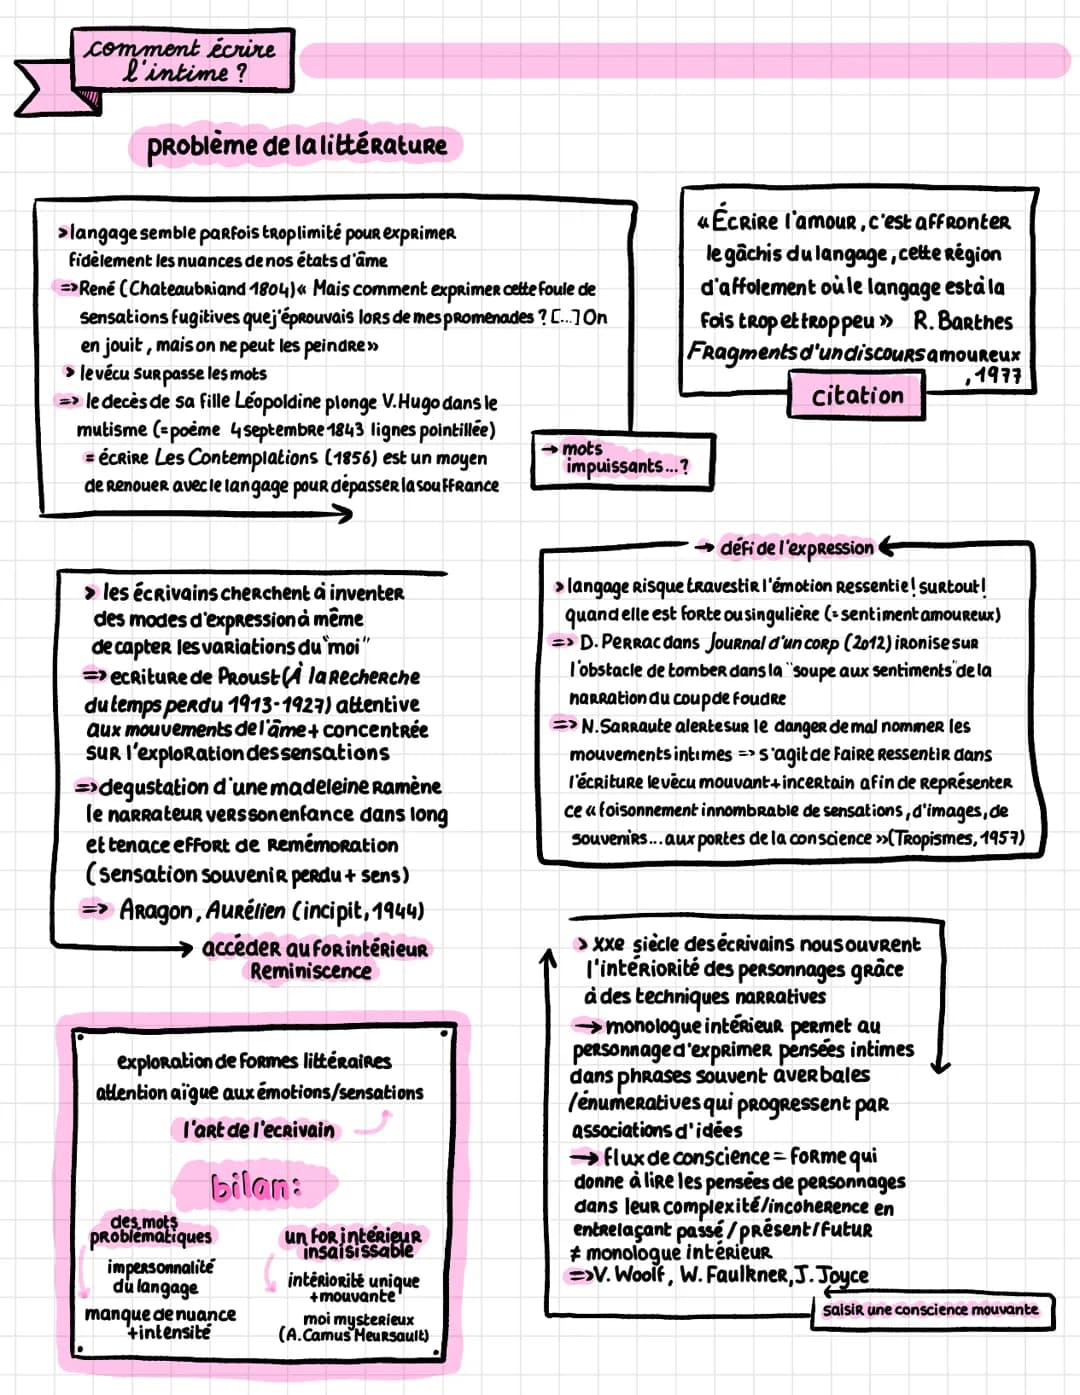 comment écrire
l'intime ?
problème de la littérature
> langage semble parfois trop limité pour exprimer
fidèlement les nuances de nos états d'âme
=> René (Chateaubriand 1804) « Mais comment exprimer cette foule de
sensations fugitives que j'éprouvais lors de mes promenades ? [...] On
en jouit, mais on ne peut les peindre »
> le vécu surpasse les mots
=> le decès de sa fille Léopoldine plonge V.Hugo dans le
mutisme (=poème 4 septembre 1843 lignes pointillée)
= écrire Les Contemplations (1856) est un moyen
de renouer avec le langage pour dépasser la souffrance
→ mots
impuissants...?
« Écrire l'amour, c'est affronter
le gâchis du langage, cette région
d'affolement où le langage est à la
fois trop et trop peu » R. Barthes
Fragments d'un discours amoureux
, 1977
citation
→ défi de l'expression
> langage risque travestir l'émotion ressentie! surtout!
quand elle est forte ou singulière (= sentiment amoureux)
=> D. Perrac dans Journal d'un corp (2012) ironise sur
l'obstacle de tomber dans la "soupe aux sentiments" de la
narration du coup de foudre
=> N.Sarraute alerte sur le danger de mal nommer les
mouvements intimes => s'agit de faire ressentir dans
l'écriture le vécu mouvant + incertain afin de représenter
ce « foisonnement innombrable de sensations, d'images, de
souvenirs... aux portes de la conscience » (Tropismes, 1957)
> les écrivains cherchent à inventer
des modes d'expression à même
de capter les variations du "moi"
=> ecriture de Proust (À la recherche
du temps perdu 1913-1927) attentive
aux mouvements de l'âme + concentrée
sur l'exploration des sensations
=> degustation d'une madeleine ramène
le narrateur vers son enfance dans long
et tenace effort de remémoration
(sensation souvenir perdu + sens)
=> Aragon, Aurélien (incipit, 1944)
→ accéder au for intérieur
Reminiscence
> XXe siècle des écrivains nous ouvrent
l'intériorité des personnages grâce
à des techniques narratives
→ monologue intérieur permet au
personnage d'exprimer pensées intimes
dans phrases souvent averbales
/énumeratives qui progressent par
associations d'idées
→ flux de conscience = forme qui
donne à lire les pensées de personnages
dans leur complexité/incoherence en
entrelaçant passé/présent/futur
≠ monologue intérieur
=> V. Woolf, W. Faulkner, J. Joyce
saisir une conscience mouvante
exploration de formes littéraires
attention aïgue aux émotions/sensations
l'art de l'ecrivain
bilan:
des mots
problématiques
impersonnalité
du langage
manque de nuance
+intensité
un for intérieur
insaisissable
intériorité unique
+mouvante
moi mysterieux
(A.Camus Meursault)